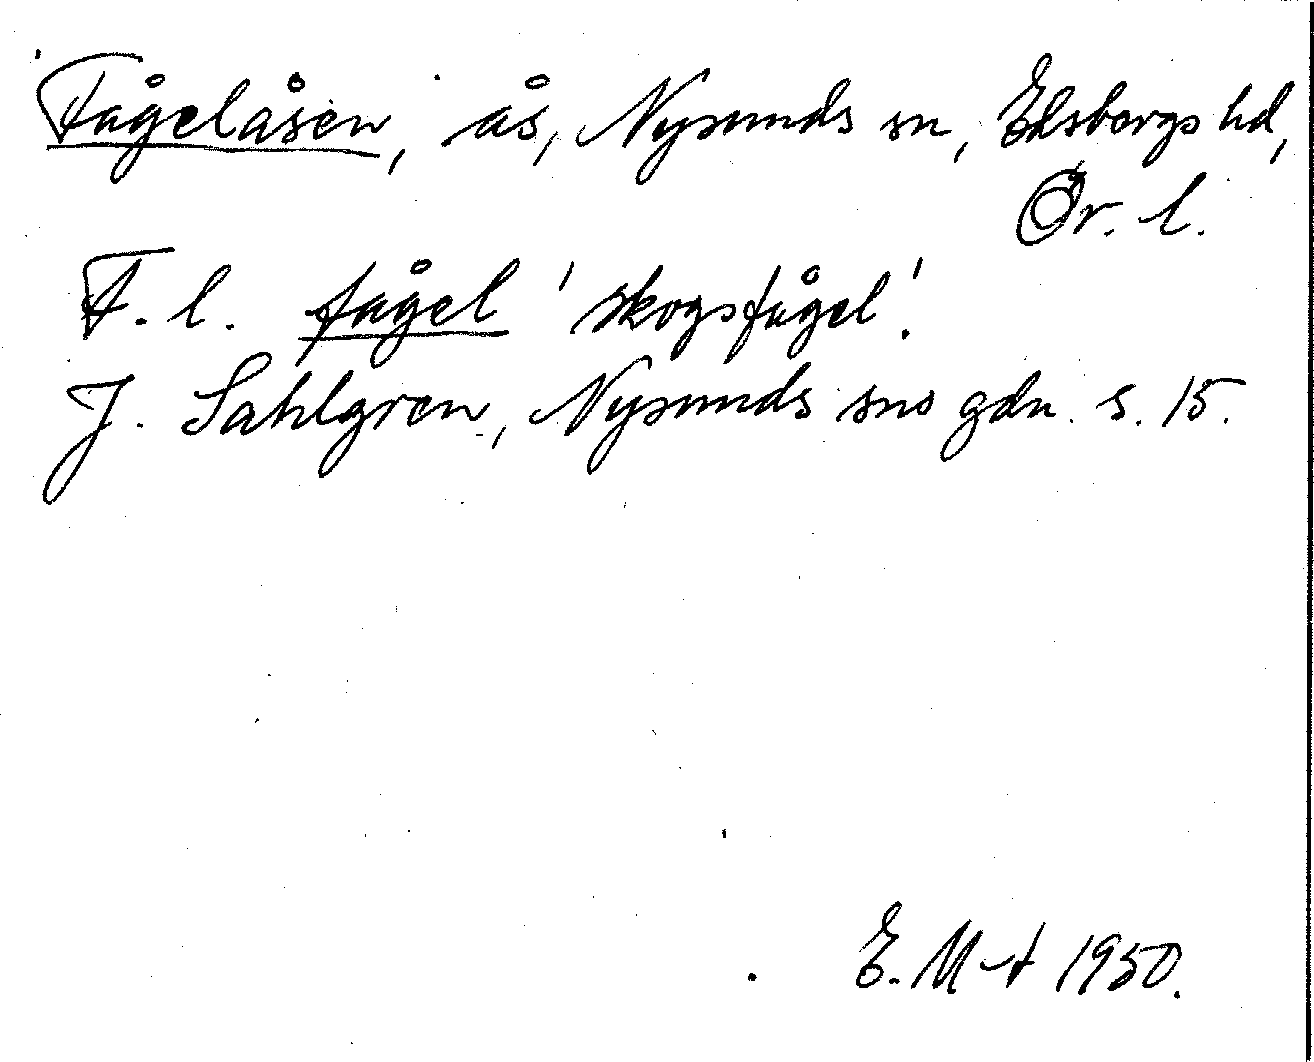 Fågelåsen, ås, Nysunds sn, Edsbergs hd,
Ör. l.
F. l. fågel 'skogsfågel'.
J. Sahlgren, Nysunds sns gdn. s. 15.
E. M-t 1950.